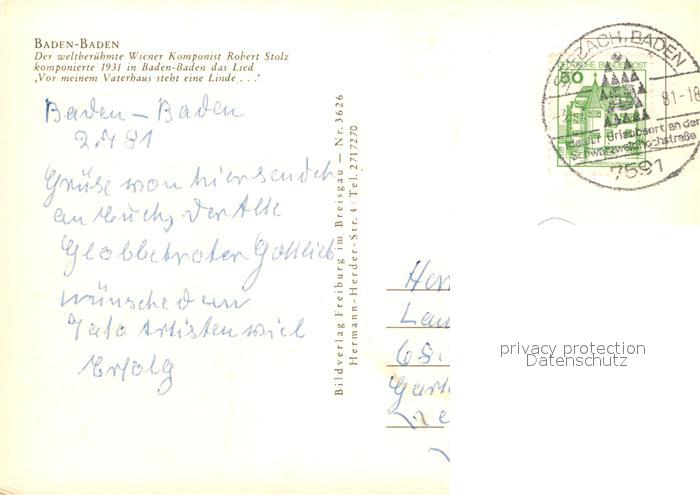 BADEN-BADEN
Der weltberühmte Wiener Komponist Robert Stolz
komponierte 1931 in Baden-Baden das Lied
‚Vor meinem Vaterhaus steht eine Linde . . .'
Baden - Baden
81
Grüße von hier sendet
an Euch, der Alte
Globbetroter Gottlieb
wünsche
Artisten viel
Erfolg
Bildverlag Freiburg im Breisgau — Nr. 3626
Hermann-Herder-Str. 4 / Tel. 2717270
DEUTSCHE BUNDESPOST
50
BADEN
81-18
idealer Urlaubsort an der
Schwarzwaldhochstraße
7591
68.
privacy protection
Datenschutz